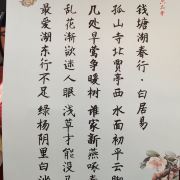 钱塘湖春行·白居易
孤山寺北贾亭西 水面初平云脚
几处早莺争暖树 谁家新燕啄
乱花渐欲迷人眼 浅草才能没
最爱湖东行不足 绿杨阴里白沙